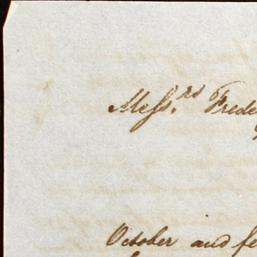 Messrs. Frede
October and fe